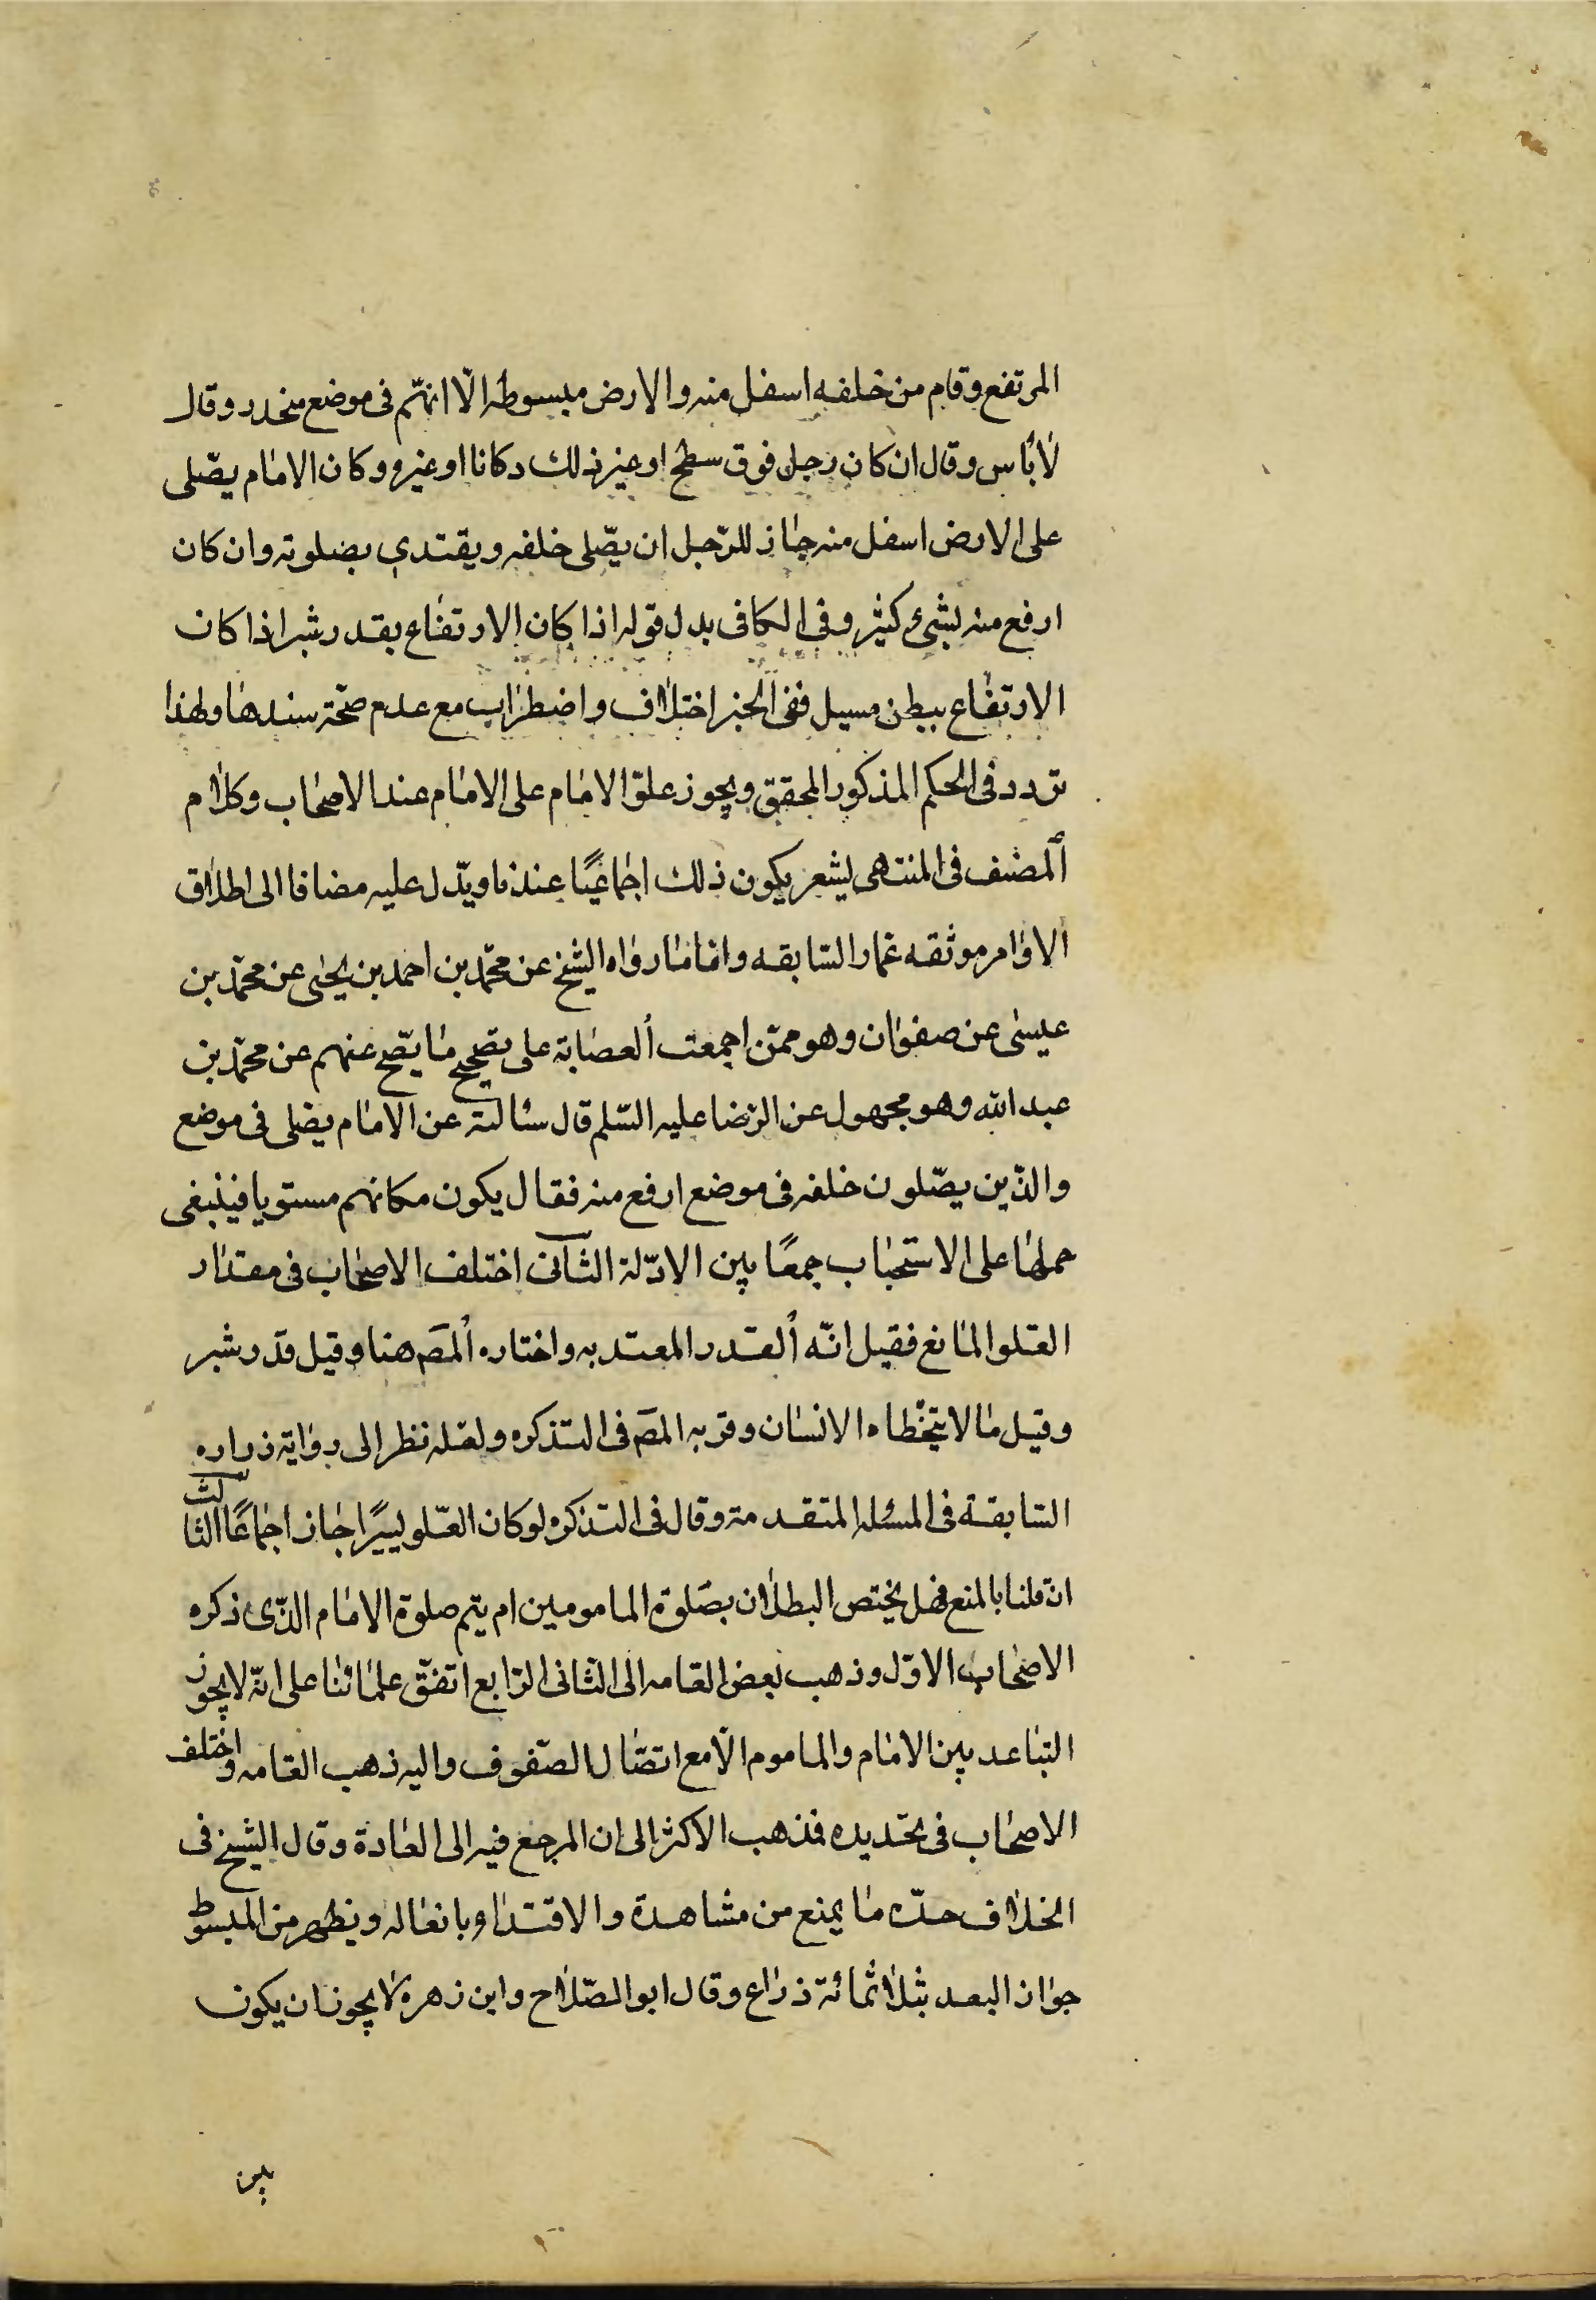 المرتفع وقام من خلفه اسفل منه والارض مبسوطه الّا انهّم فى موضع منحدر وقال
لا بٔاس وقال ان كان رجل فوق سطح او غير ذلك دكانا او غيره وكان الامام يصّلى
على الارض اسفل منه جاز للرّجل ان يصّلى خلفه ويقتدى بصلوته وان كان
ارفع منه بشئ كثير وفى الكافى بدل قوله اذا كان الارتفاع بقدر شبر اذا كان
الارتفاع ببطن مسيل ففى الخبر اختلاف واضطراب مع عدم صحّة سندها ولهذا
تردد فى الحكم المذكور المحقق ويجوز علوّ الامام على الامام عند الاصحاب وكلام
المصنف فى المنتهى يشعر بكون ذلك اجماعيًا عندنا ويدّل عليه مضافا الى اطلاق
الاوامر موثقه عمار السّابقه وامّا ما رواه الشيخ عن محمّد بن احمد بن يحيى عن محمّد بن
عيسى عن صفوان وهو ممّن اجمعت العصابة على تصحيح ما يصّح عنهم عن محمّد بن
عبد الله وهو مجهول عن الرّضا عليه السّلم قال سئالته عن الامام يصلى فى موضع
والذّين يصّلون خلفه فى موضع ارفع منه فقال يكون مكانهم مستويا فينبغى
حملها على الاستحباب جمعًا بين الادّلة الثانى اختلف الاصحاب فى مقدار
العلّو المانع فقيل انّه القدر المعتد به واختاره المصَ هنا وقيل قدر شبر
وقيل ما لا يتخّطاه الانسان وقربه المصَ فى التذكره ولعّله نظر الى رواية زراره
السّابقة فى المسئله المتقدمة وقال فى التذكره لو كان العلّو يسيرًا جاز اجماعًا الثالث
ان قلنا بالمنع فهل يختص البطلان بصلوة المامومين ام يتم صلوة الامام الذّى ذكره
الاصحاب الاوّل وذهب بعض العامه الى الثانى الرّابع اتفق علمائنا على انّه لا يجوز
التباعد بين الامام والماموم الّا مع اتصّال الصّفوف واليه ذهب العامه واختلف
الاصحاب فى تحّديده فذهب الاكثر الى ان المرجع فيه الى العادة وقال الشيخ فى
الخلاف حدّه ما يمنع من مشاهدة والاقتداء بافعاله ويظهر من المبسوط
جواز البعد بثلاثمائة ذراع وقال ابو الصّلاح وابن زهره لا يجوز ان يكون
بين